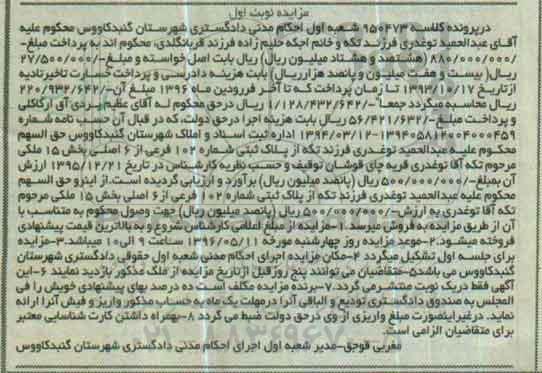 مزایده نوبت اول
درپرونده کلاسه ۹۵۰۴۷۳ شعبه اول احکام مدنی دادگستری شهرستان گنبدکاووس محکوم علیه
آقای عبدالحمید توغدری فرزند تکه و خانم اجکه حلیم زاده فرزند قربانگلدی، محکوم اند به پرداخت مبلغ-
/۸۸۰/۰۰۰/۰۰۰ (هشتصد و هشتاد میلیون ریال) ریال بابت اصل خواسته و مبلغ-/۲۷/۵۰۰/۰۰۰
ریال( بیست و هفت میلیون و پانصد هزارریال) بابت هزینه دادرسی و پرداخت خسارت تاخیرتادیه
ازتاریخ ۱۳۹۳/۱۰/۱۷ تا زمان پرداخت که تا آخر فروردین ماه ۱۳۹۶ مبلغ آن-/۲۲۰/۹۳۲/۶۴۲
ریال محاسبه میگردد جمعاً -/۱/۱۲۸/۴۳۲/۶۴۲ ریال درحق محکوم لـه آقای عظیم بردی آق ارکاکلی
و پرداخت مبلغ-/۵۶/۴۲۱/۶۳۲ ریال بابت هزینه اجرا درحق دولت، که در قبال آن حسب نامه شماره
۱۳۹۴۰۵۸۱۲۰۰۴۰۰۰۴۵۹-۱۳۹۴/۰۳/۱۲ اداره ثبت اسناد و املاک شهرستان گنبدکاووس حق السهم
محکوم علیه عبدالحمید توغدری فرزند تکه از پلاک ثبتی شماره ۱۰۲ فرعی از ۶ اصلی بخش ۱۵ ملکی
مرحوم تکه آقا توغدری قریه جای قوشان توقیف و حسب نظریه کارشناس در تاریخ ۱۳۹۵/۱۲/۲۱ ارزش
آن بمبلغ-/۵۰۰/۰۰۰/۰۰۰ ریال (پانصد میلیون ریال) برآورد و ارزیابی گردیده است.از اینرو حق السهم
محکوم علیه عبدالحمید توغدری فرزند تکه از پلاک ثبتی شماره ۱۰۲ فرعی از ۶ اصلی بخش ۱۵ ملکی مرحوم
تکه آقا توغدری به ارزش-/۵۰۰/۰۰۰/۰۰۰ ریال (پانصد میلیون ریال) جهت وصول محکوم به متناسب با
آن از طریق مزایده به فروش میرسد.۱-مزایده از مبلغ اعلامی کارشناس شروع و به بالاترین قیمت پیشنهادی
فروخته میشود.۲-موعد مزایده روز چهارشنبه مورخه ۱۳۹۶/۰۵/۱۱ ساعت ۹ الی ۱۰ میباشد.۳-مزایده
برای جلسه اول تشکیل میگردد ۴-مکان مزایده اجرای احکام مدنی شعبه اول حقوقی دادگستری شهرستان
گنبدکاووس می باشد۵-متقاضیان می توانند پنج روزقبل ازتاریخ مزایده از ملک مذکور بازدید نمایند ۶-این
آگهی فقط دریک نوبت منتشرمی گردد.۷-برنده مزایده مکلف است ده درصد بهای پیشنهادی خویش را فی
المجلس به صندوق دادگستری تودیع و الباقی آنرا درمهلت یک ماه به حساب مذکور واریز و فیش آنرا ارائه
نماید. درغیراینصورت مبلغ واریزی از وی درحق دولت ضبط می گردد ۸-بهمراه داشتن کارت شناسایی معتبر
برای متقاضیان الزامی است.
مغربی قوجق-مدیر شعبه اول اجرای احکام مدنی دادگستری شهرستان گنبدکاووس